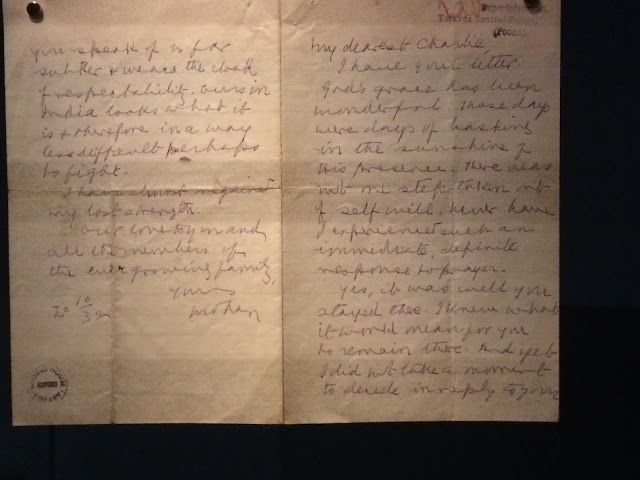 Superintendent
Yeravda Central Prison
(POONA)
My dearest Charlie,
I have your letter.
God's grace has been
wonderful. Those days
were days of basking
in the sunshine of
His presence. There was
not one step taken out
of self will. Never have
I experienced such an
immediate, definite
response to prayer.
Yes, it was well you
stayed there. I knew what
it would mean for you
to remain there. And yet
I did not take a moment
to decide in reply to your
you speak of is far
subtler & wears the cloak
of respectability. Ours in
India looks what it
is & therefore in a way
less difficult perhaps
to fight.
I have almost regained
my lost strength.
Our love to you and
all the members of
the ever growing family,
Yours
Mohan
10
3